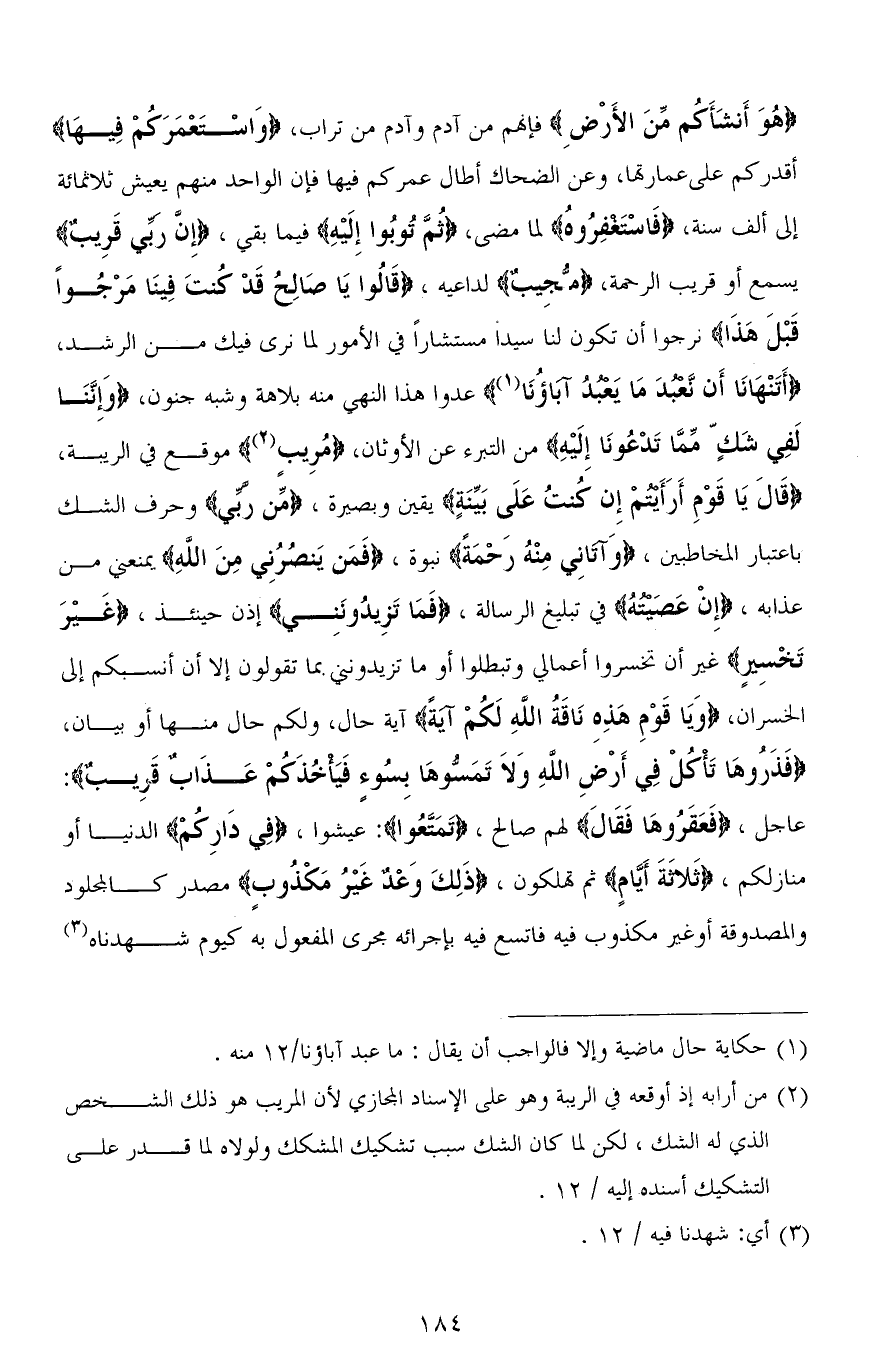 ﴿هُوَ أَنشَأَكُم مِّنَ الأَرْضِ﴾ فإنهم من آدم وآدم من تراب، ﴿وَاسْتَعْمَرَكُمْ فِيهَا﴾
أقدركم على عمارتها، وعن الضحاك أطال عمركم فيها فإن الواحد منهم يعيش ثلاثمائة
إلى ألف سنة، ﴿فَاسْتَغْفِرُوهُ﴾ لما مضى، ﴿ثُمَّ تُوبُوا إِلَيْهِ﴾ فيما بقي ، ﴿إِنَّ رَبِّي قَرِيبٌ﴾
يسمع أو قريب الرحمة، ﴿مُّجِيبٌ﴾ لداعيه ، ﴿قَالُوا يَا صَالِحُ قَدْ كُنتَ فِينَا مَرْجُواً
قَبْلَ هَذَا﴾ نرجوا أن تكون لنا سيداً مستشاراً في الأمور لما نرى فيك من الرشد،
﴿أَتَنْهَانَا أَن نَّعْبُدَ مَا يَعْبُدُ آبَاؤُنَا(١)﴾ عدوا هذا النهي منه بلاهة وشبه جنون، ﴿وَإِنَّنَا
لَفِي شَكٍّ مِّمَّا تَدْعُونَا إِلَيْهِ﴾ من التبرء عن الأوثان، ﴿مُرِيبٍ(٢)﴾ موقع في الريبة،
﴿قَالَ يَا قَوْمِ أَرَأَيْتُمْ إِن كُنتُ عَلَى بَيِّنَةٍ﴾ يقين وبصيرة ، ﴿مِّن رَّبِّي﴾ وحرف الشك
باعتبار المخاطبين ، ﴿وَآتَانِي مِنْهُ رَحْمَةً﴾ نبوة ، ﴿فَمَن يَنصُرُنِي مِنَ اللَّهِ﴾ يمنعني من
عذابه ، ﴿إِنْ عَصَيْتُهُ﴾ في تبليغ الرسالة ، ﴿فَمَا تَزِيدُونَنِي﴾ إذن حينئذ ، ﴿غَيْرَ
تَخْسِيرٍ﴾ غير أن تخسروا أعمالي وتبطلوا أو ما تزيدونني بما تقولون إلا أن أنسبكم إلى
الخسران، ﴿وَيَا قَوْمِ هَذِهِ نَاقَةُ اللَّهِ لَكُمْ آيَةً﴾ آية حال، ولكم حال منها أو بيان،
﴿فَذَرُوهَا تَأْكُلْ فِي أَرْضِ اللَّهِ وَلاَ تَمَسُّوهَا بِسُوءٍ فَيَأْخُذَكُمْ عَذَابٌ قَرِيبٌ﴾:
عاجل ، ﴿فَعَقَرُوهَا فَقَالَ﴾ لهم صالح ، ﴿تَمَتَّعُوا﴾: عيشوا ، ﴿فِي دَارِكُمْ﴾ الدنيا أو
منازلكم ، ﴿ثَلاثَةَ أَيَّامٍ﴾ ثم تهلكون ، ﴿ذَلِكَ وَعْدٌ غَيْرُ مَكْذُوبٍ﴾ مصدر كالمجلود
والمصدوقة أوغير مكذوب فيه فاتسع فيه بإجرائه مجرى المفعول به كيوم شهدناه(٣)
(١) حكاية حال ماضية وإلا فالواجب أن يقال : ما عبد آباؤنا/١٢ منه .
(٢) من أرابه إذ أوقعه في الريبة وهو على الإسناد المجازي لأن المريب هو ذلك الشخص
الذي له الشك ، لكن لما كان الشك سبب تشكيك المشكك ولولاه لما قدر على
التشكيك أسنده إليه / ١٢ .
(٣) أي: شهدنا فيه / ١٢ .
١٨٤